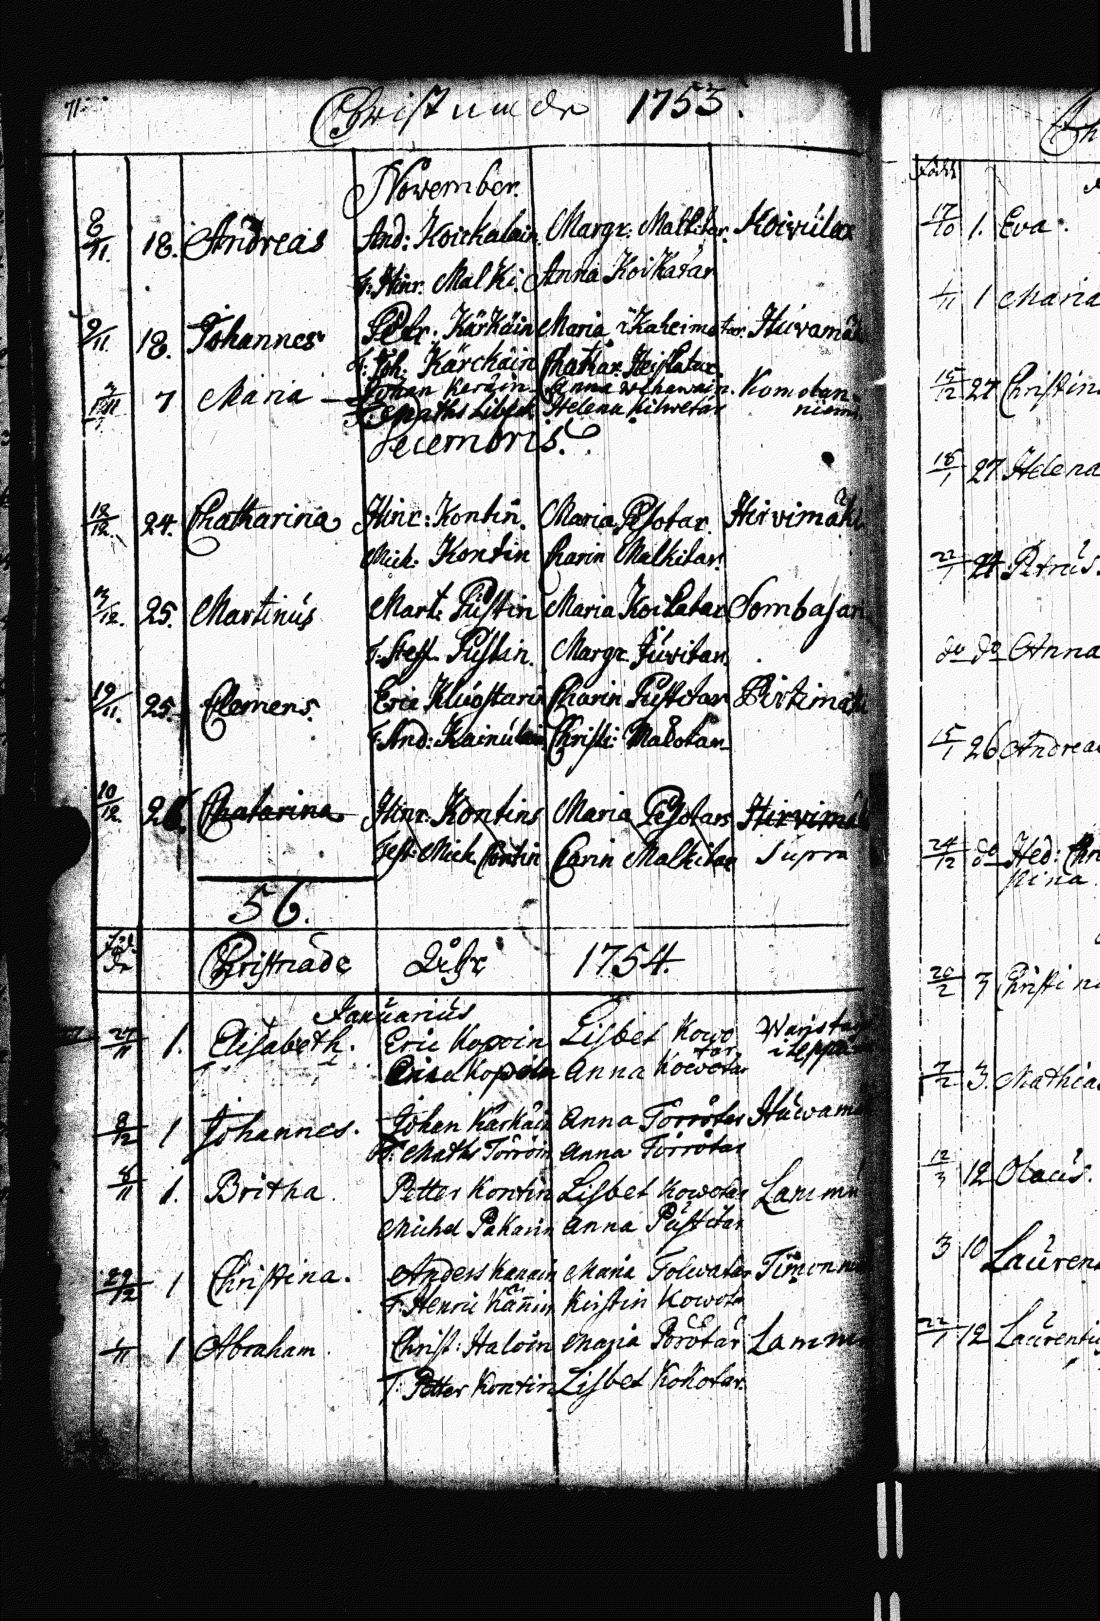 71.
Christnade 1753.
November.
8/11 18. Andreas And: Koickalain Margr: Malkitar. Koivülax
T: Hinr. Malki. Anna Koikatar
9/11. 18. Johannes Petr. Kärkäin Maria Hüvamäk
T: Joh. Kärckäin Chatar.
7 Maria Johan Anna Komotan
Helena niemi
Decembris.
18/12. 24. Chatharina Hinr: Kontin. Maria Pesotar. Hirvimäki
Mich: Kontin Charin Malkitar.
3/12. 25. Martinús Mart: Püstin Maria Koikatar Sombasar
T. Steff. Püstin. Margr. Jüvitar.
19/11. 25. Clemens. Eric Klügstarin Charin Püstitar Pirtimäk
T. And: Kainúlain Christi:
10/12. 26. Chatarina Hinr: Kontins Maria Pesotars Hirvimäk
Test: Mich. Contin Carin Malkitar Supra
56.
Födde Christnade Åhr 1754.
Januariús
27/11 1. Elisabeth. Eric Kopoin Lisbet Kowo
tar
Kopoin Anna Kowotar
8/12 1 Johannes. Johan Kärkäin Anna Törrötar Hüwamä
T. Maths Törröin Anna Törrötar
8/11 1. Britha. Petter Kontin Lisbet Kowotar Lammi
Michel Pakarin Anna Püstitar
29/12 1 Christina. Anders Kanain Maria Tolwatar Timonni
T. Henric Kännin Kirstin Kowota
1/11 1 Abraham. Christ: Haloin Maria Pörötär Lamm
T. Petter Kontin Lisbet Kokotar.
Ch
Född
17/10 1. Eva.
1/11 1 Maria
15/12 27 Christin
18/1 27 Helena
22/1 24 Petrús.
do do Anna
15/1 26 Andrea
24/12 do Hed: Chri
stina
20/2 3 Christi na
7/2 3. Mathias
12/3 12 Olaús.
3 10 Lauren
22/1 12 Laurentiu